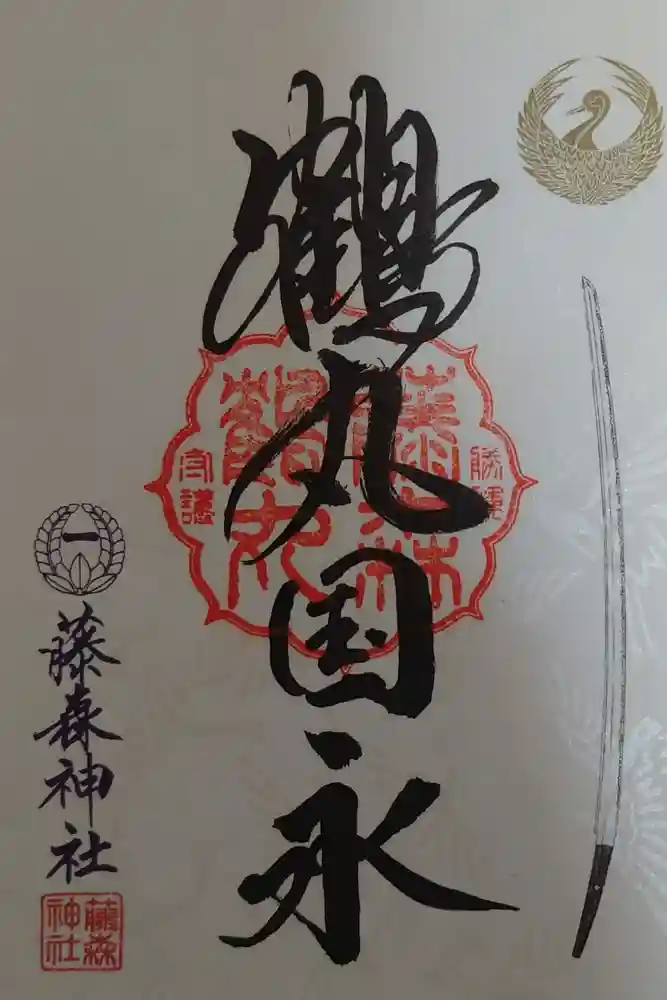 鶴丸国永
勝運
藤森
鶴丸
守護
一
藤森神社
藤森
神社